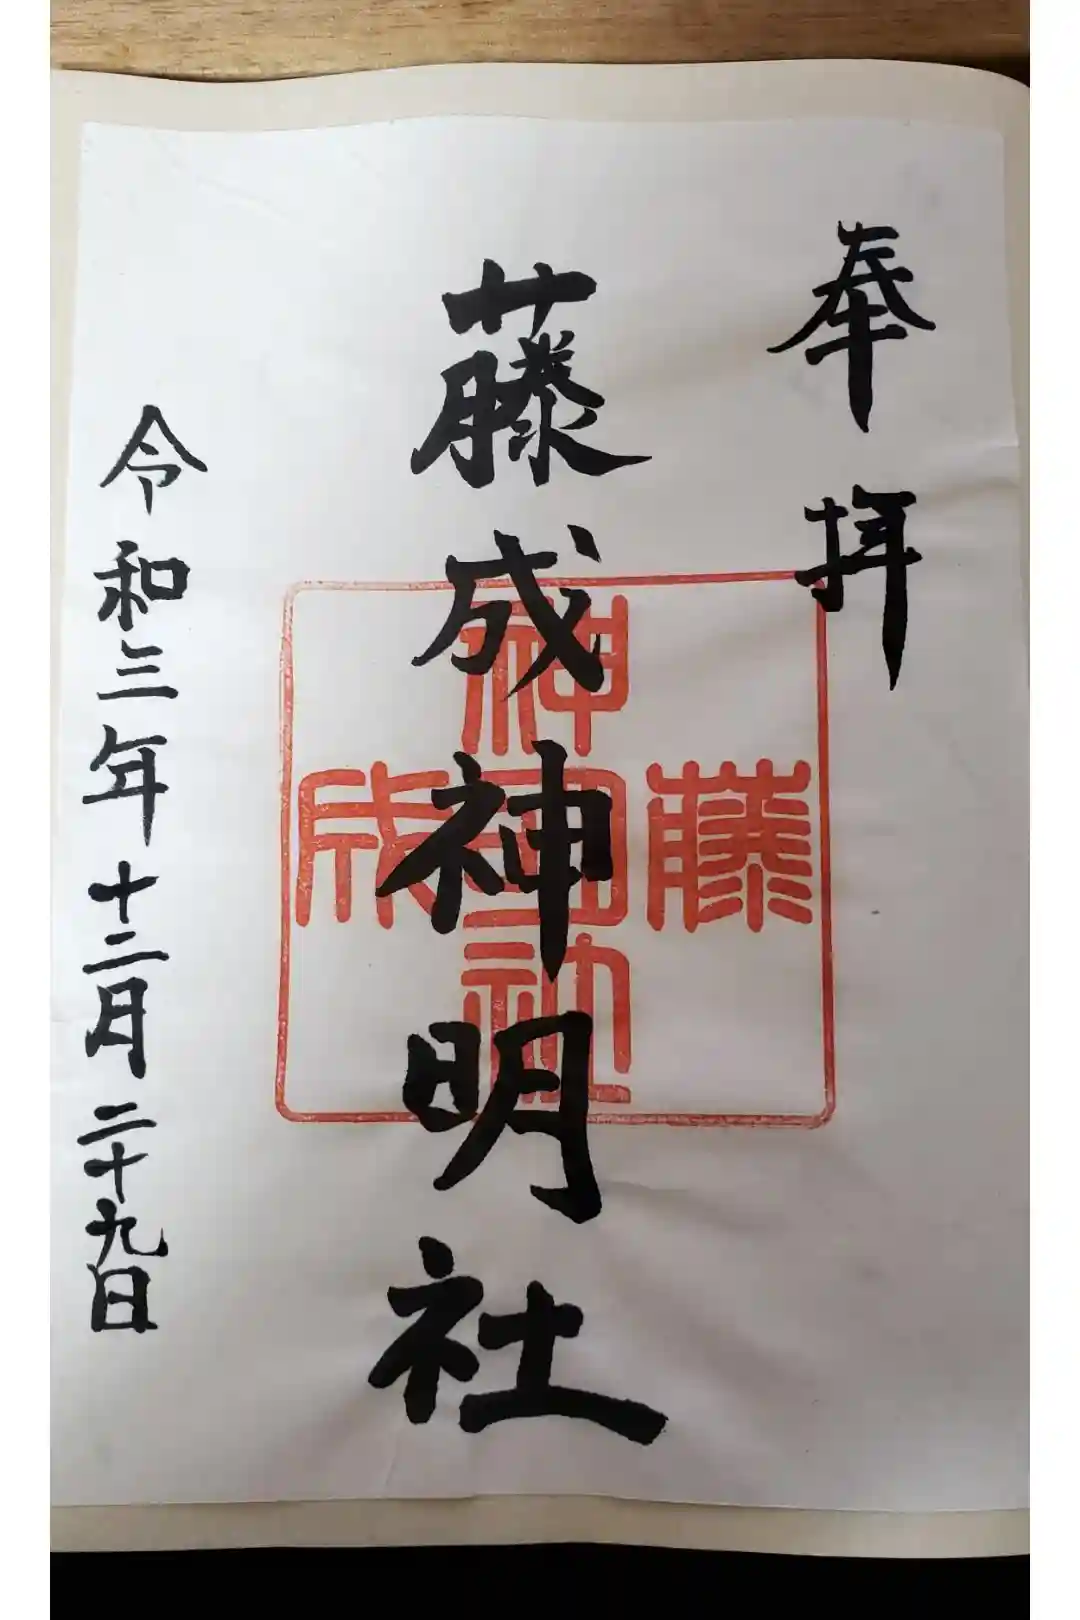 奉拝
藤成神明社
藤成神明社
令和三年十二月二十九日